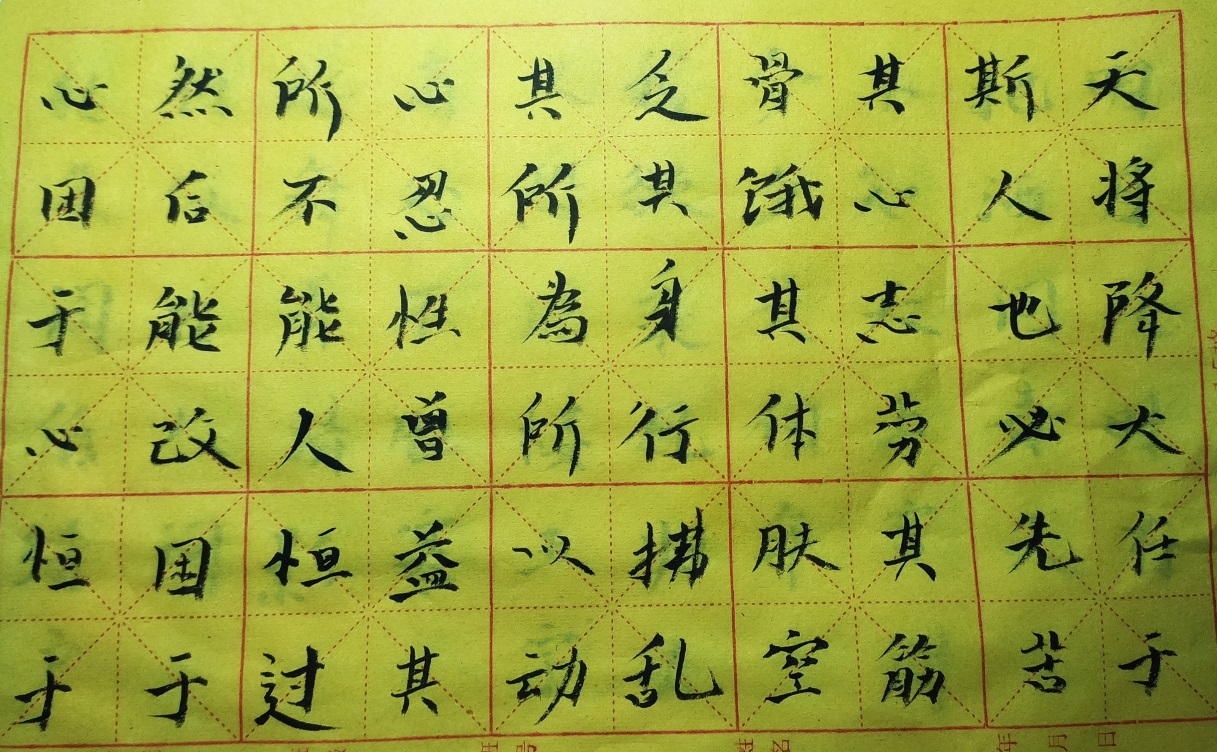 天将降大任于
斯人也必先苦
其心志劳其筋
骨饿其体肤空
乏其身行拂乱
其所為所以动
心忍性曾益其
所不能人恒过
然后能改困于
心困于心恒于
姓名
年月日